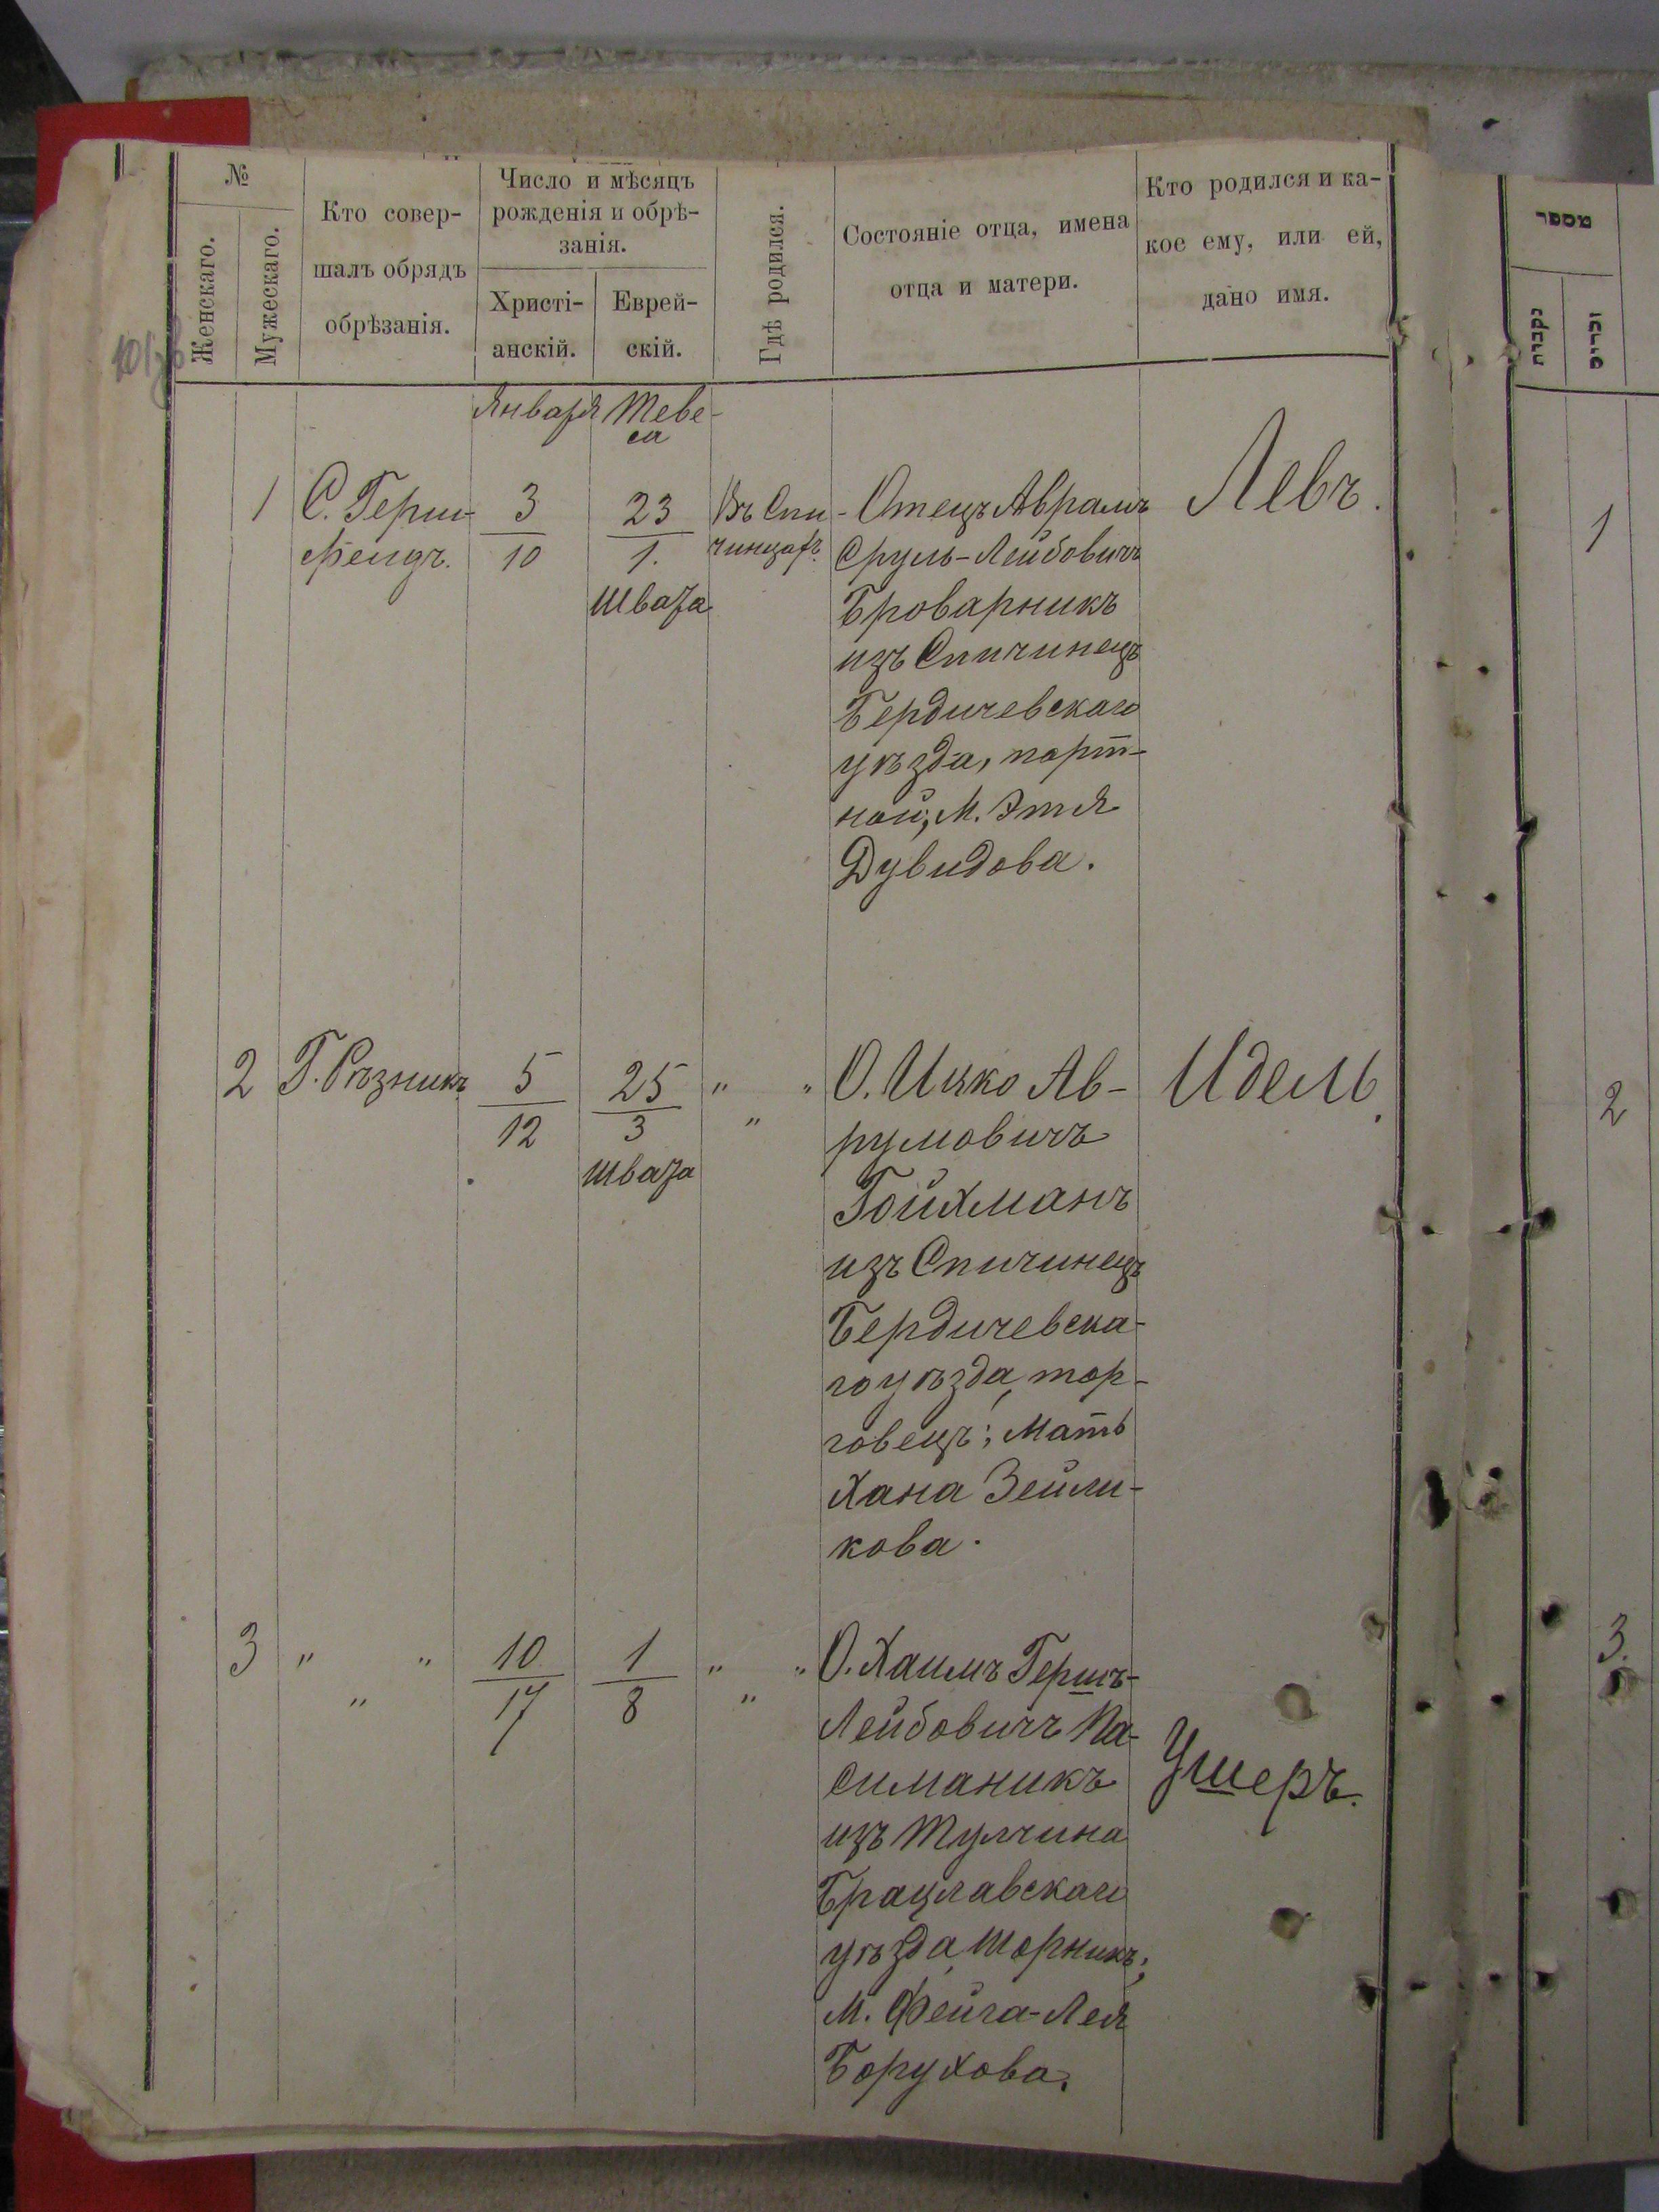 №
Женскаго.
Мужескаго.
Кто совер-
шалъ обрядъ
обрѣзанія.
Число и мѣсяцъ
рожденія и обрѣ-
занія.
Христі-
анскій.
Еврей-
скій.
Гдѣ родился.
Состояніе отца, имена
отца и матери.
Кто родился и ка-
кое ему, или ей,
дано имя.
מספר
נקבות
זכרים
Января
Теве-
са
1
С. Герш-
фельдъ.
3
10
23
1.
Швата
Въ Спи-
чинцахъ
Отецъ Аврамъ
Сруль-Лейбовичъ
Броварникъ
изъ Спичинецъ
Бердичевскаго
уѣзда, порт-
ной, М. Этя
Дувидова.
Левъ.
1
2
Г. Рѣзникъ
5
12
25
3
Швата
" "
"
О. Ицко Ав-
румовичъ
Гойхманъ
изъ Спичинецъ
Бердичевска-
го уѣзда, тор-
говецъ; Мать
Хана Зейли-
кова.
Идель.
2
3
" "
"
10
17
1
8
" "
"
О. Хаимъ Гершъ-
Лейбовичъ Па-
симаникъ
изъ Тулчина
Брацлавскаго
уѣзда, шорникъ;
М. Фейга-Лея
Борухова.
Ушеръ.
3.